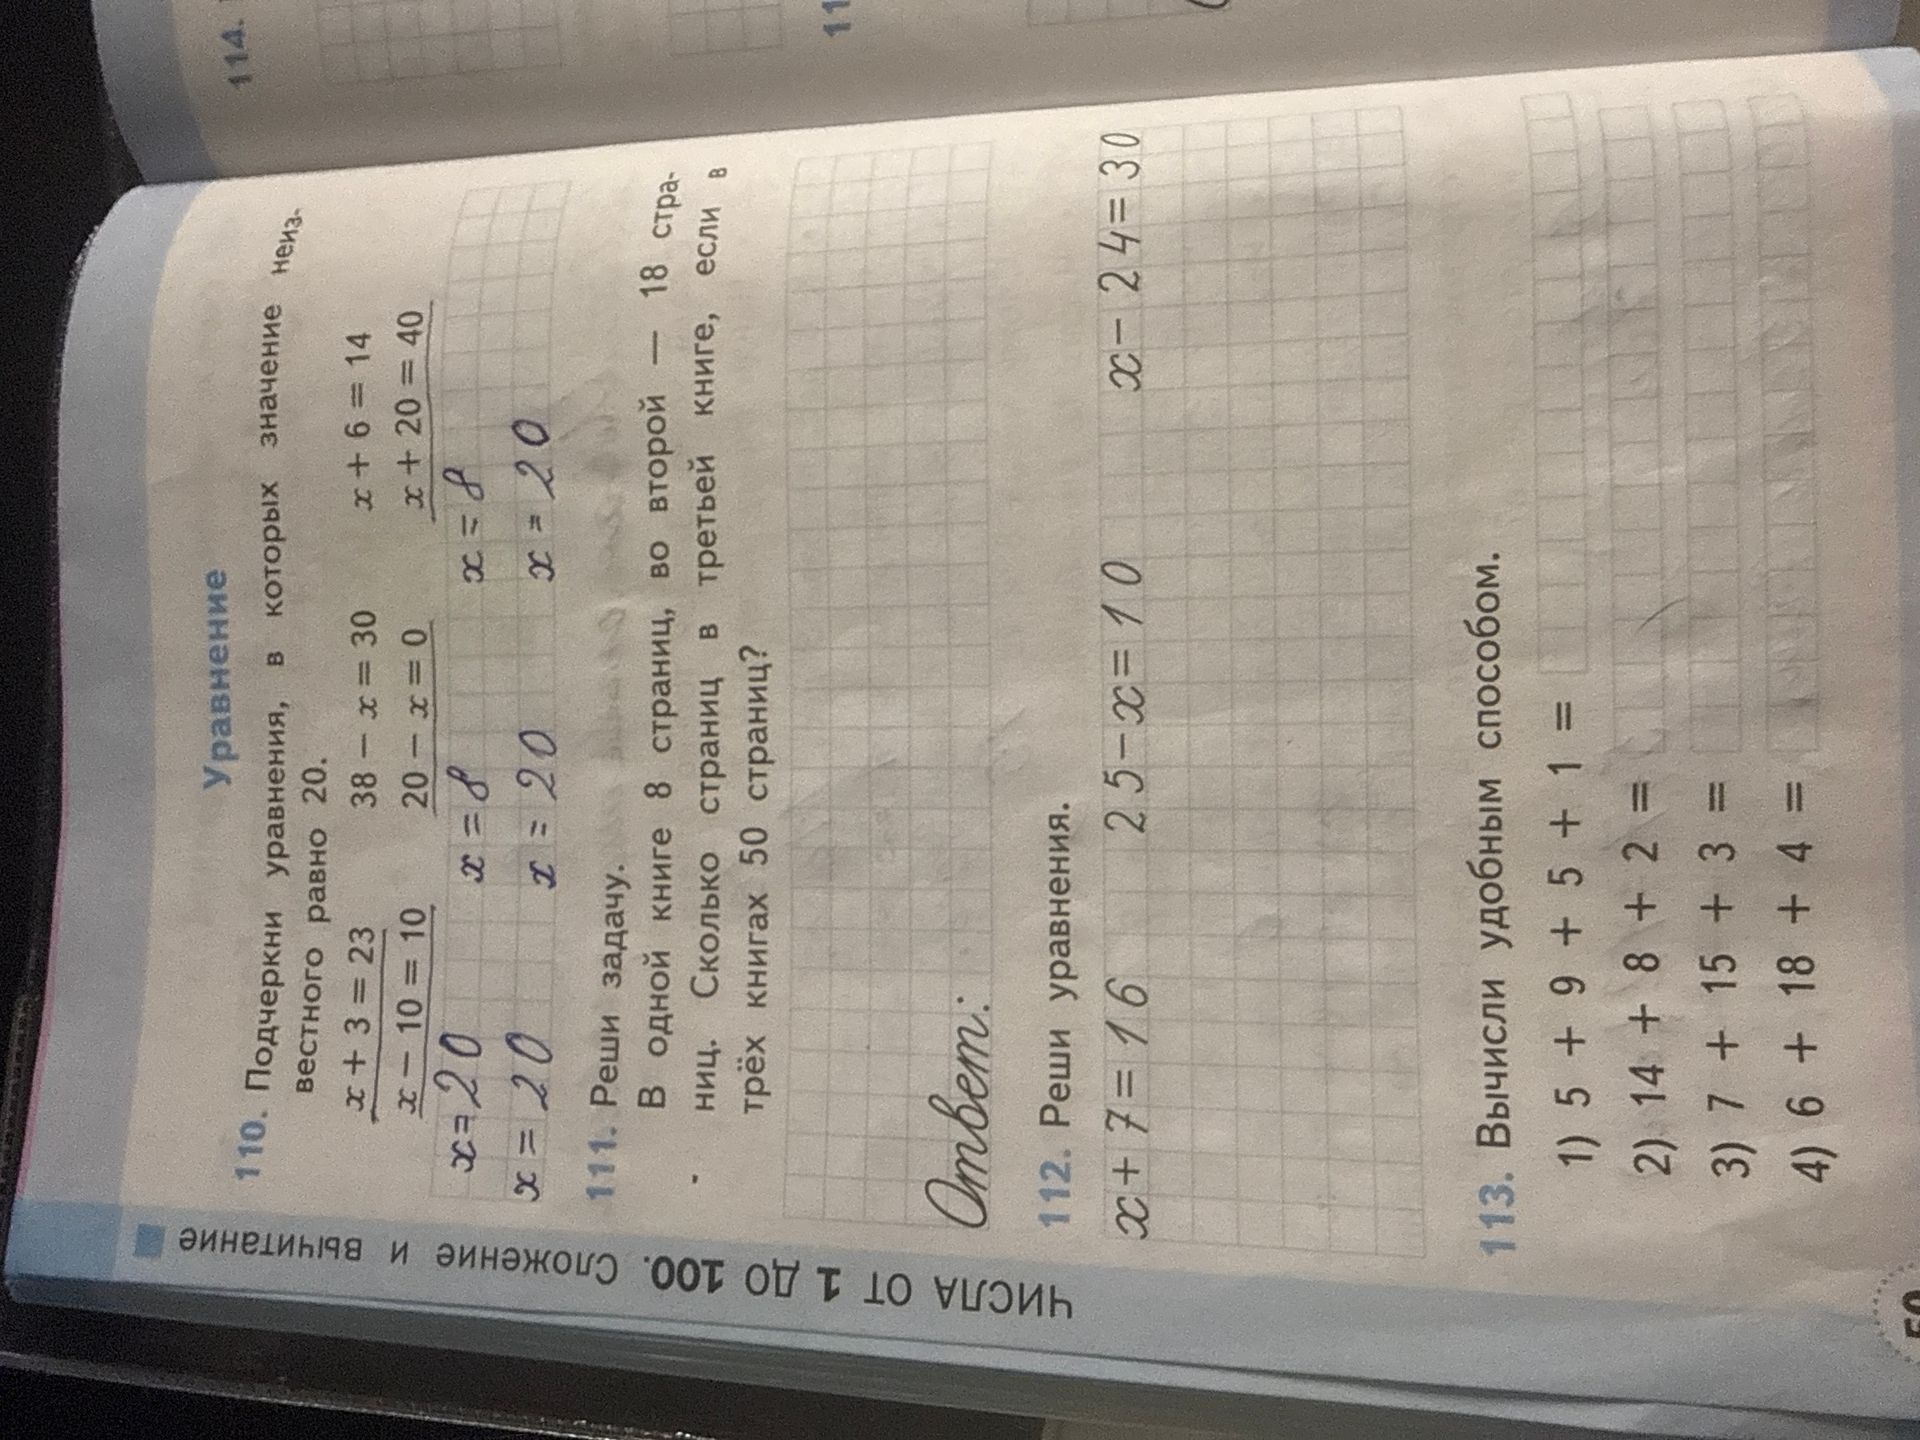 ЧИСЛА ОТ 1 ДО 100. Сложение и вычитание
Уравнение
110. Подчеркни уравнения, в которых значение неиз-
вестного равно 20.
x + 3 = 23 38 − x = 30 x + 6 = 14
x − 10 = 10 20 − x = 0 x + 20 = 40
x = 20 x = 8 x = 8
x = 20 x = 20 x = 20
111. Реши задачу.
В одной книге 8 страниц, во второй — 18 стра-
ниц. Сколько страниц в третьей книге, если в
трёх книгах 50 страниц?
Ответ:
112. Реши уравнения.
x + 7 = 16 25 − x = 10 x − 24 = 30
113. Вычисли удобным способом.
1) 5 + 9 + 5 + 1 =
2) 14 + 8 + 2 =
3) 7 + 15 + 3 =
4) 6 + 18 + 4 =
114.